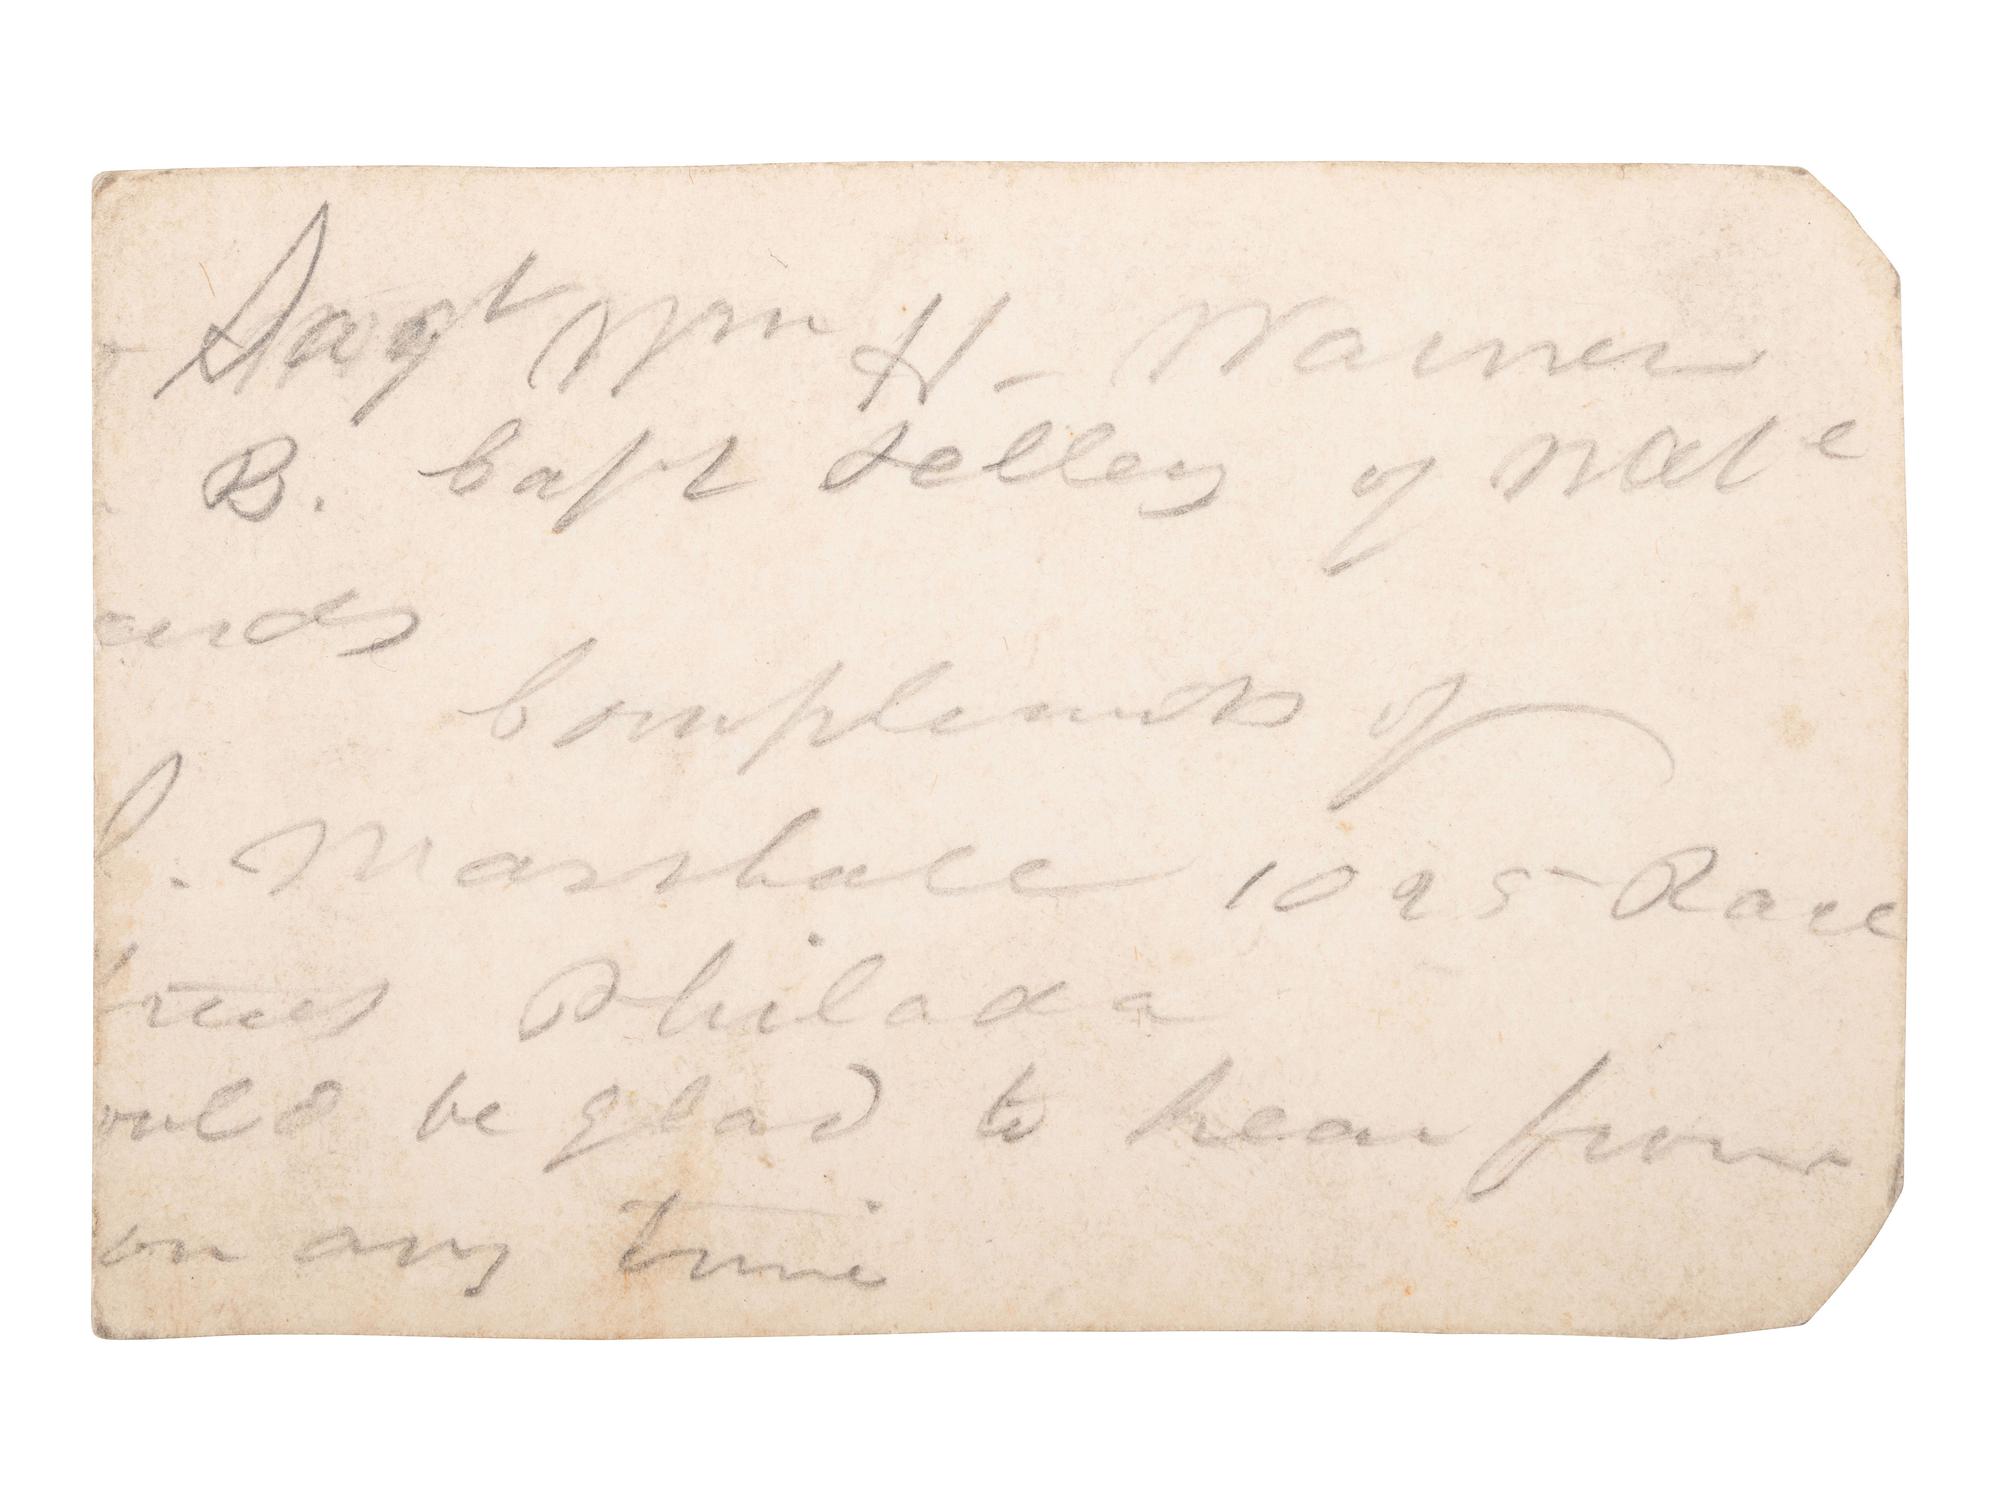 Sargt Wm H - Warner
B. Capt Kelley of
ards
Compliments of
. Marshall 1025 Race
treet Philada
ould be glad to hear from
ou any time